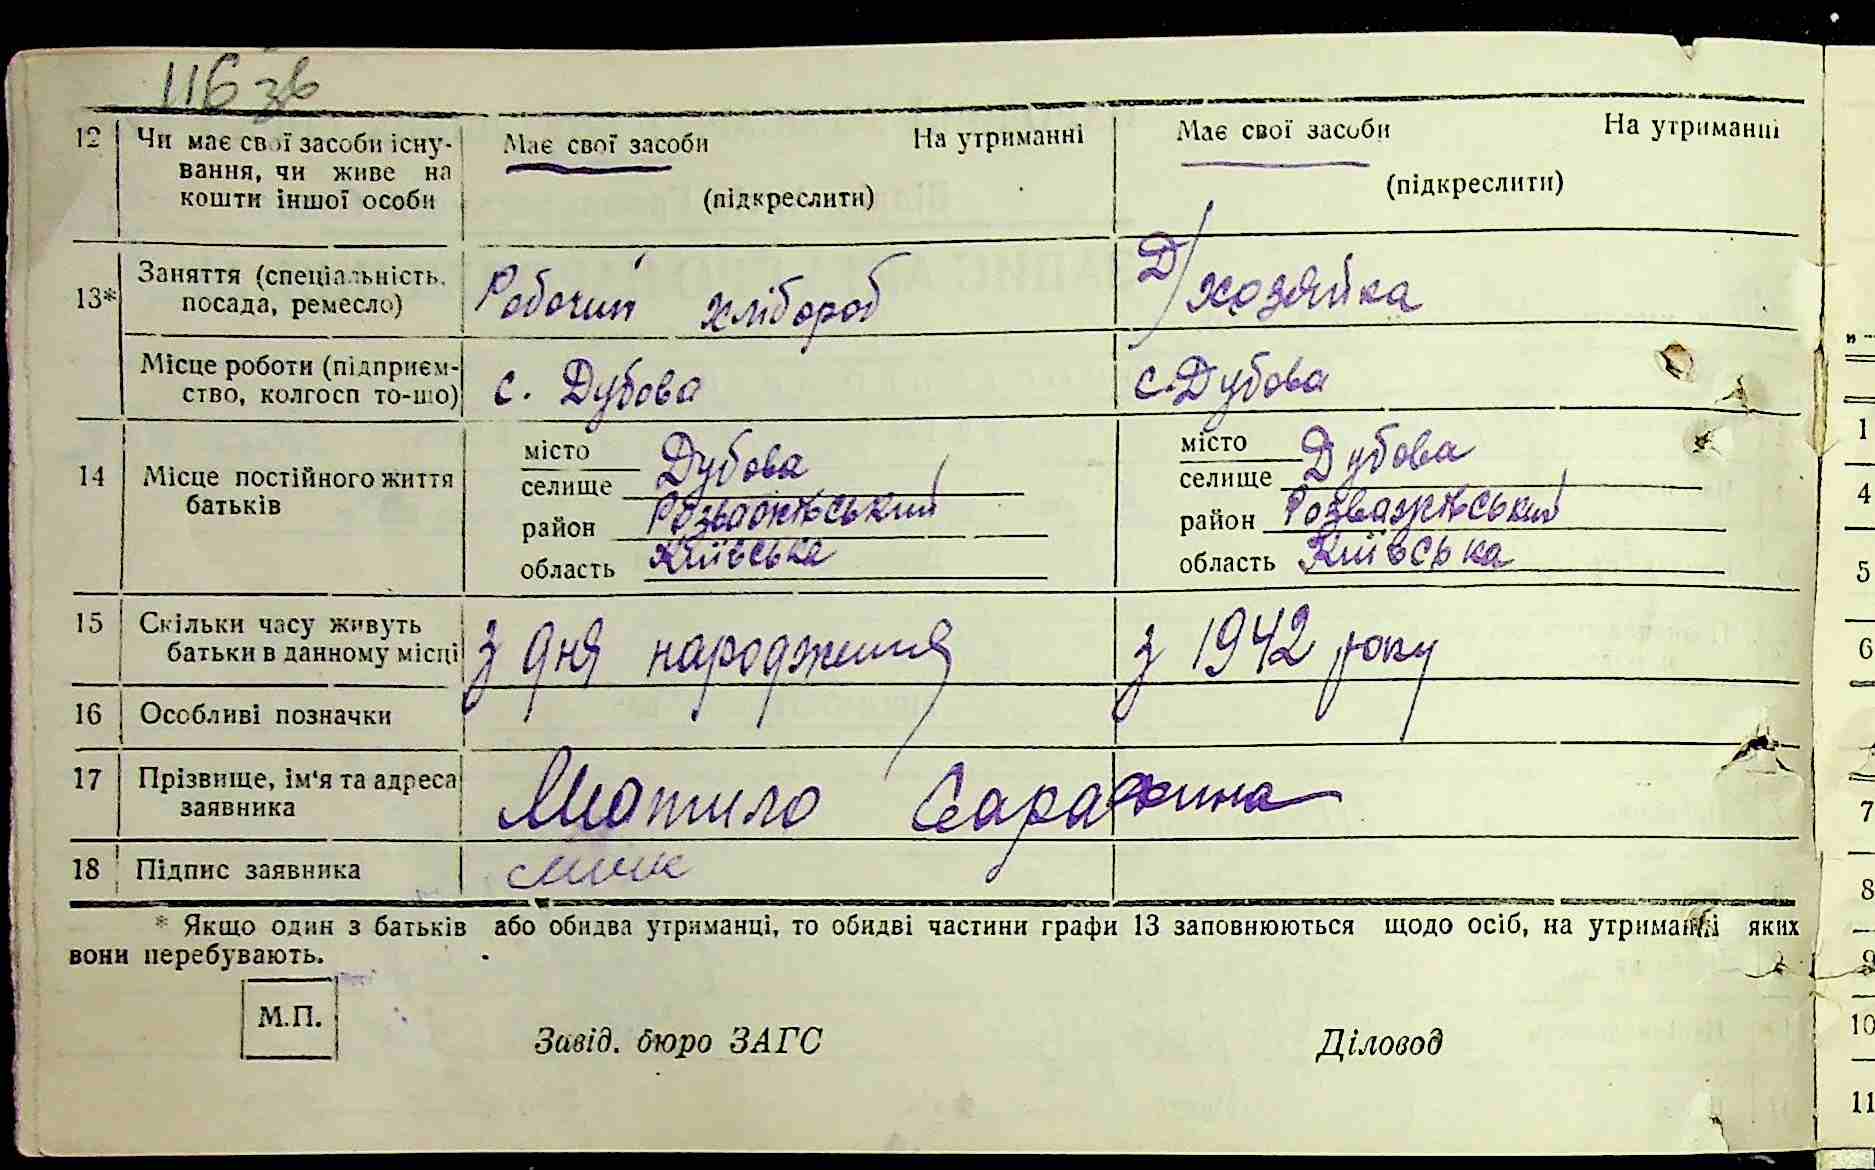 116 зв
12 Чи має свої засоби існу- Має свої засоби На утриманні Має свої засоби На утриманні
вання, чи живе на
кошти іншої особи (підкреслити) (підкреслити)
13* Заняття (спеціальність, Робочий хлібороб Д/хозяйка
посада, ремесло)
Місце роботи (підприєм- с. Дубова с. Дубова
ство, колгосп то-що)
14 Місце постійного життя місто Дубова місто Дубова
батьків селище селище
район Розважівський район Розважівський
область Київська область Київська
15 Скільки часу живуть З дня народження з 1942 року
батьки в данному місці
16 Особливі позначки
17 Прізвище, ім'я та адреса Сарафина
заявника
18 Підпис заявника
* Якщо один з батьків або обидва утриманці, то обидві частини графи 13 заповнюються щодо осіб, на утриманні яких
вони перебувають.
М.П.
Завід. бюро ЗАГС Діловод
1
4
5
6
7
8
9
10
11